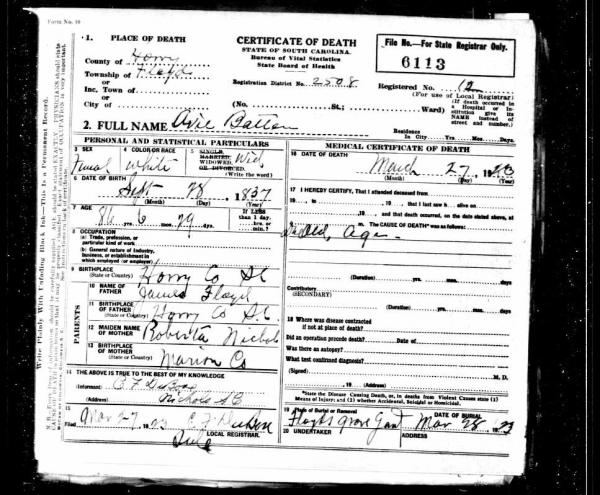 Form No. 10
1. PLACE OF DEATH
County of Horry
Township of Floyds
or
Inc. Town of
or
City of
CERTIFICATE OF DEATH
STATE OF SOUTH CAROLINA.
Bureau of Vital Statistics
State Board of Health
Registration District No. 2508
(No. St.; Ward)
File No.—For State Registrar Only.
6113
Registered No. 12
(For use of Local Registrar)
(If death occurred in a Hospital or Institution give its NAME instead of street and number.)
2. FULL NAME Avie Batten
Residence
In City Yrs. Mos. Days.
PERSONAL AND STATISTICAL PARTICULARS
3 SEX
Femal
4 COLOR OR RACE
White
5 SINGLE, MARRIED, WIDOWED, OR DIVORCED. (Write the word)
Wid
6 DATE OF BIRTH
Sept 28, 1837
(Month) (Day) (Year)
7 AGE
86 6 29 ds.
If LESS than 1 day.
hrs. or min.?
8 OCCUPATION
(a) Trade, profession, or particular kind of work
(b) General nature of Industry, business, or establishment in which employed (or employer)
9 BIRTHPLACE
(State or Country) Horry Co SC
PARENTS
10 NAME OF FATHER James Floyd
11 BIRTHPLACE OF FATHER
(State or Country) Horry Co SC.
12 MAIDEN NAME OF MOTHER Roberta Nichols
13 BIRTHPLACE OF MOTHER
(State or Country) Marion Co
14 THE ABOVE IS TRUE TO THE BEST OF MY KNOWLEDGE
(Informant)
(Address) Nichols SC
15
Filed Mar 27, 1923
LOCAL REGISTRAR.
MEDICAL CERTIFICATE OF DEATH
16 DATE OF DEATH
March 27, 1923
(Month) (Day) (Year)
17 I HEREBY CERTIFY, That I attended deceased from
19, to 19, that I last saw h alive on
19, and that death occurred, on the date stated above, at
m. The CAUSE OF DEATH* was as follows:
Old Age
(Duration) yrs. mos. days
Contributory
(SECONDARY)
(Duration) yrs. mos. days
18 Where was disease contracted
if not at place of death?
Did an operation precede death? Date of
Was there an autopsy?
What test confirmed diagnosis?
(Signed) M. D.
, 19 (Address)
*State the Disease Causing Death, or, in deaths from Violent Causes state (1) Means of Injury; and (2) whether Accidental, Suicidal or Homicidal.
19 Place of Burial or Removal
Floyds grove
DATE OF BURIAL
Mar 28, 1923
20 UNDERTAKER
ADDRESS
Write Plainly With Unfading Black Ink—This is a Permanent Record.